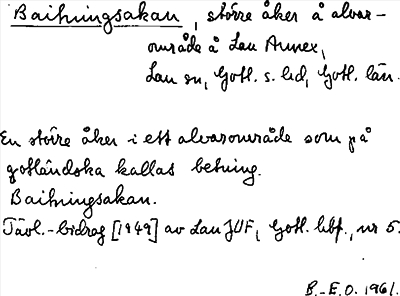 Baihningsakan, större åker å alvar-
område å Lau Annex,
Lau sn, Gotl. s. hd, Gotl. län.
En större åker i ett alvarområde som på
gotländska kallas betning.
Baihningsakan.
Tävl.-bidrag [1949] av Lau JUF, Gotl. hbf., nr 5.
B.-E.O. 1961.